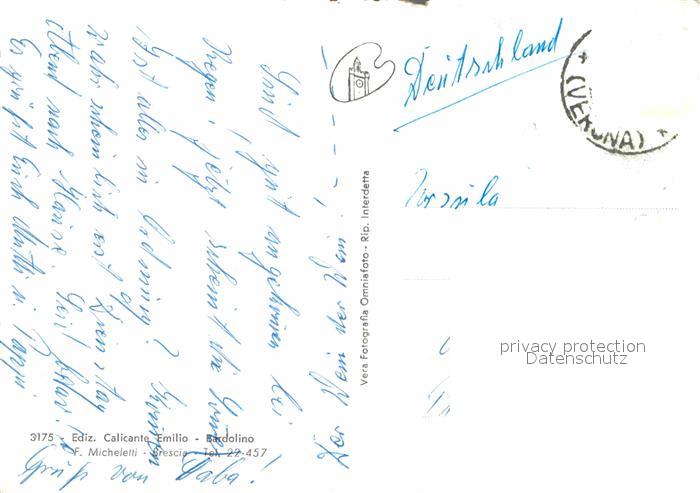 Der Wein der Wein! - - - -
Sind gut angekommen bei
Regen, jetzt scheint die Sonne
Ist alles in Ordnung? Kommen
wahrscheinlich erst Dienstag
Abend nach Hause.
Es grüßt Euch Mutti u. Papi
Gruß von Baba!
Deutschland
Ursula
(VERONA)
Vera Fotografia Omniafoto - Rip. Interdetta
privacy protection
Datenschutz
3175 - Ediz. Calicante Emilio - Bardolino
F. Micheletti - Brescia - Tel. 22-457